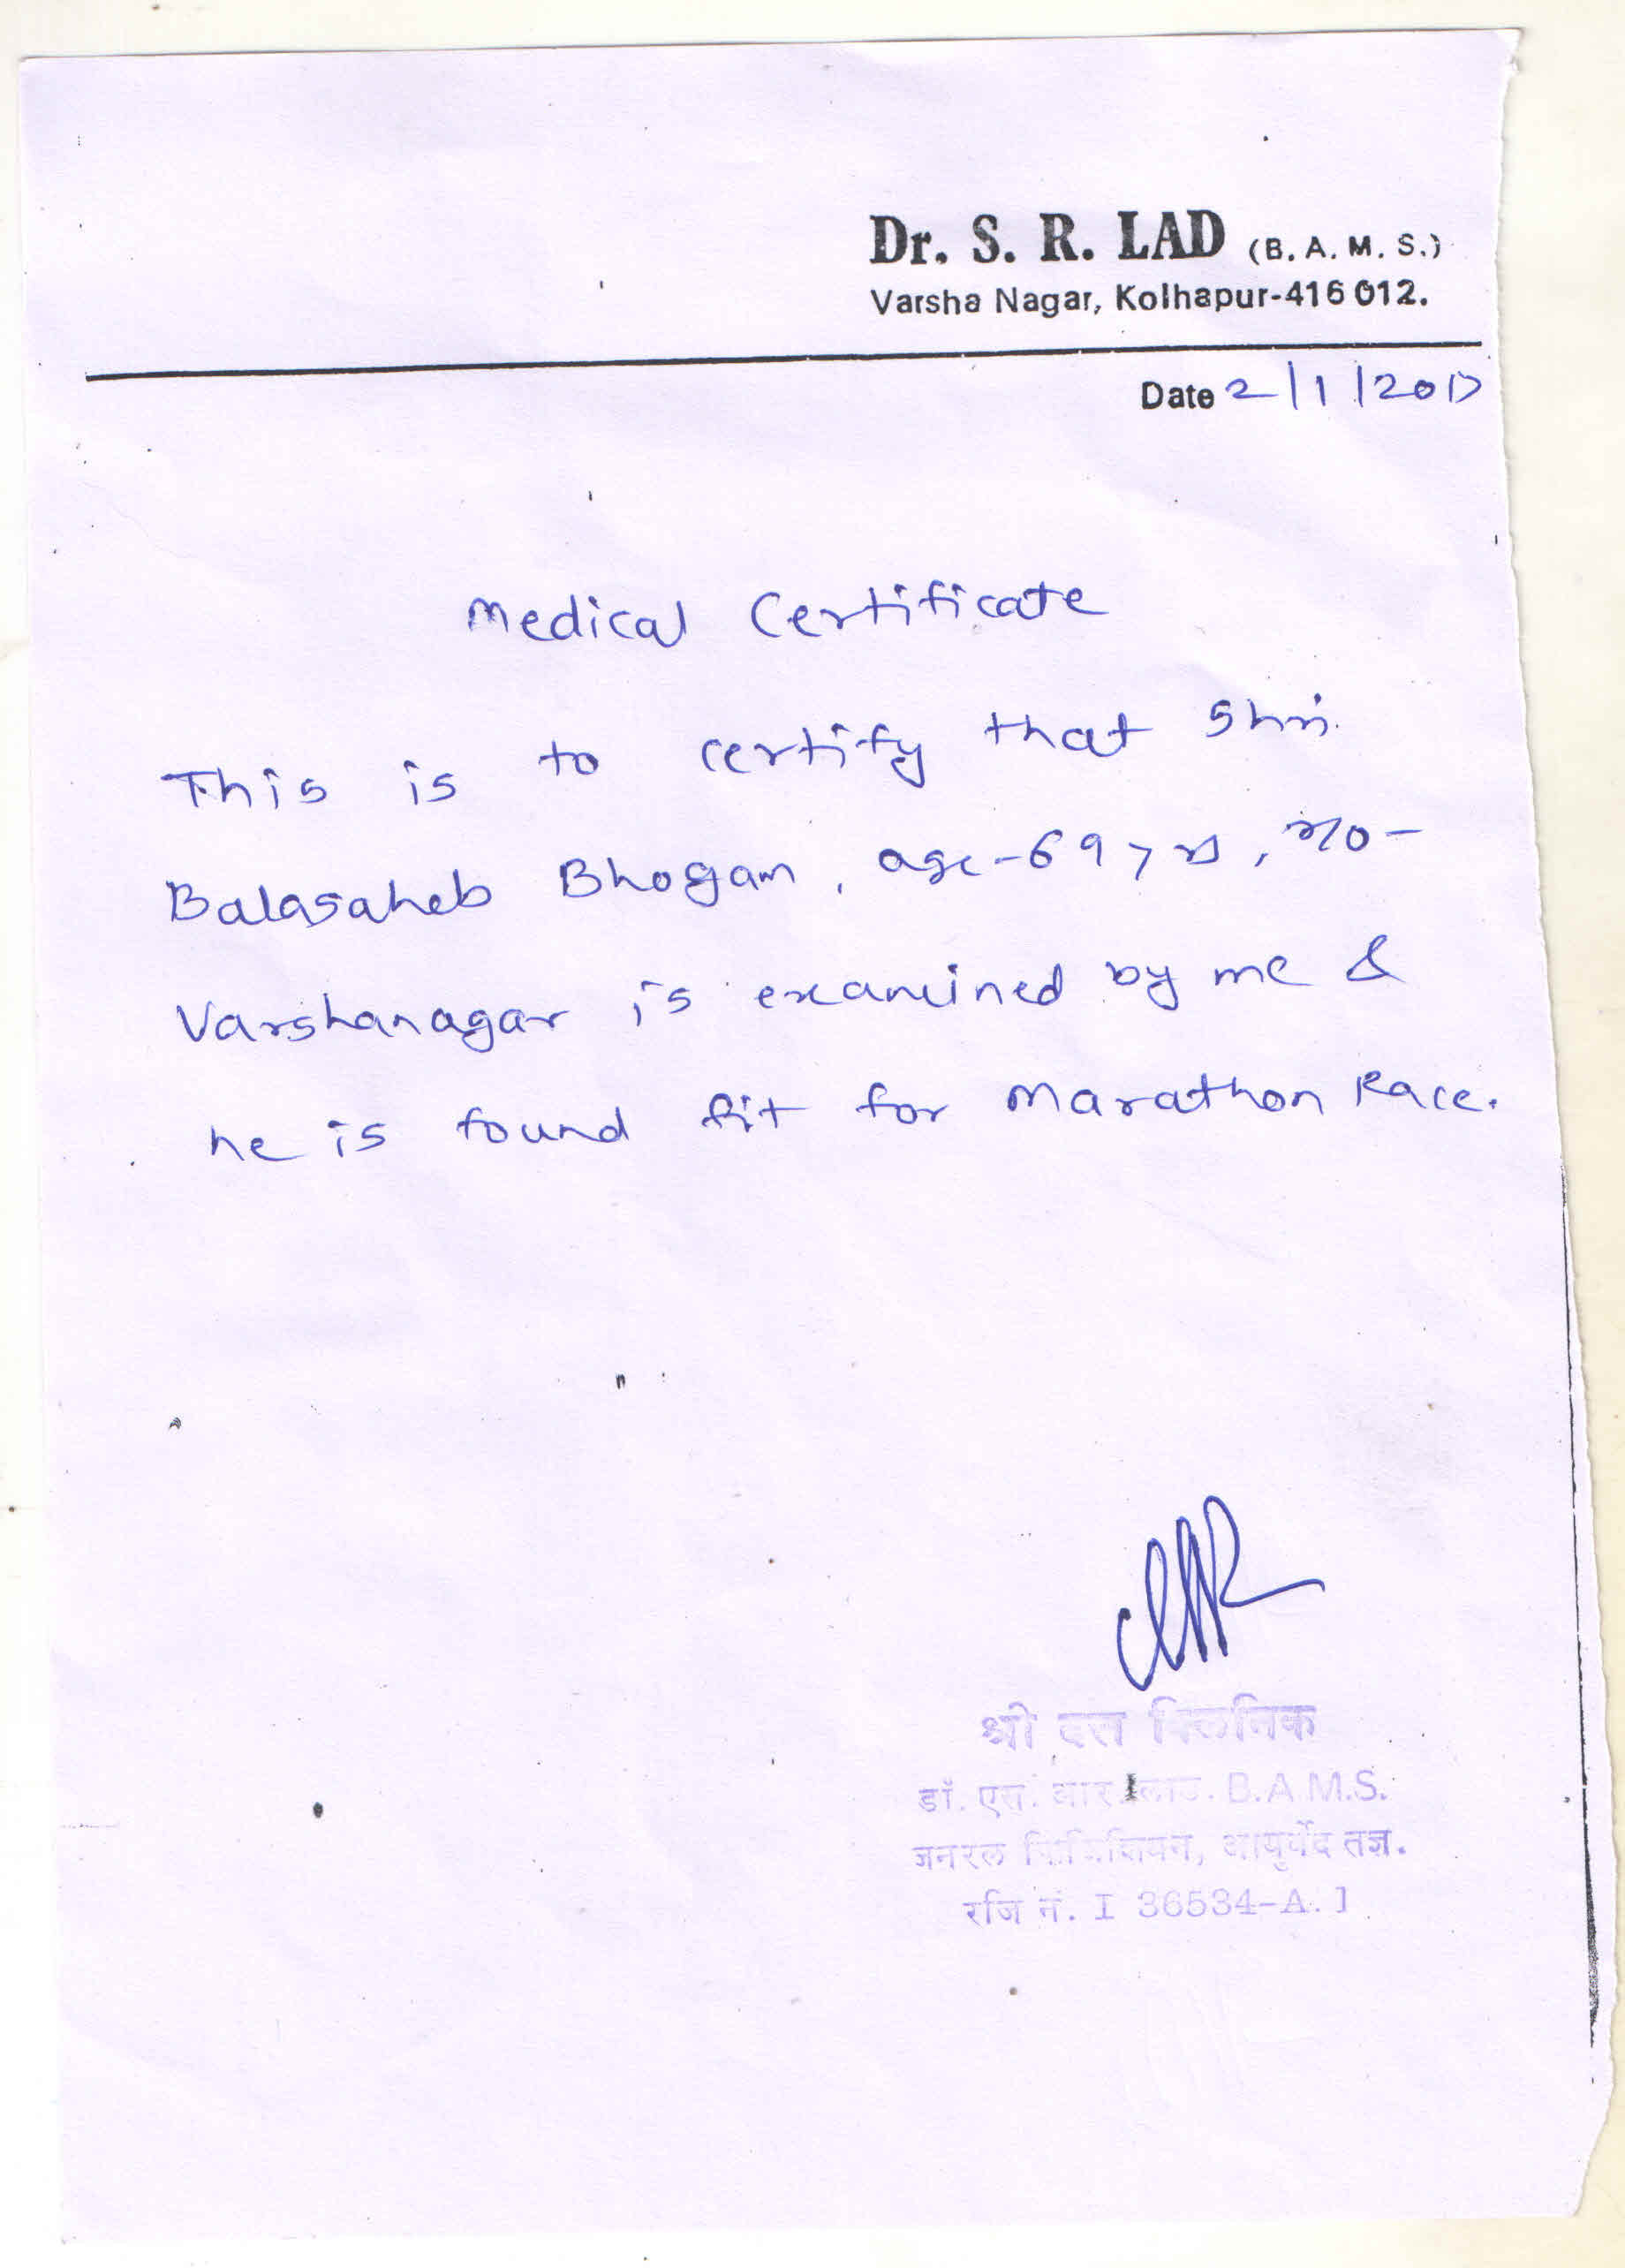 Dr. S. R. LAD (B. A. M. S.)
Varsha Nagar, Kolhapur-416 012.
Date 2/1/2017
Medical Certificate
This is to certify that Shri.
Balasaheb Bhogam, age-69 yrs, r/o-
Varshanagar is examined by me &
he is found fit for Marathon Race.
श्री दत्त क्लिनिक
डॉ. एस. आर. लाड. B.A.M.S.
जनरल फिजिशियन, आयुर्वेद तज्ञ.
रजि नं. I 36534-A.